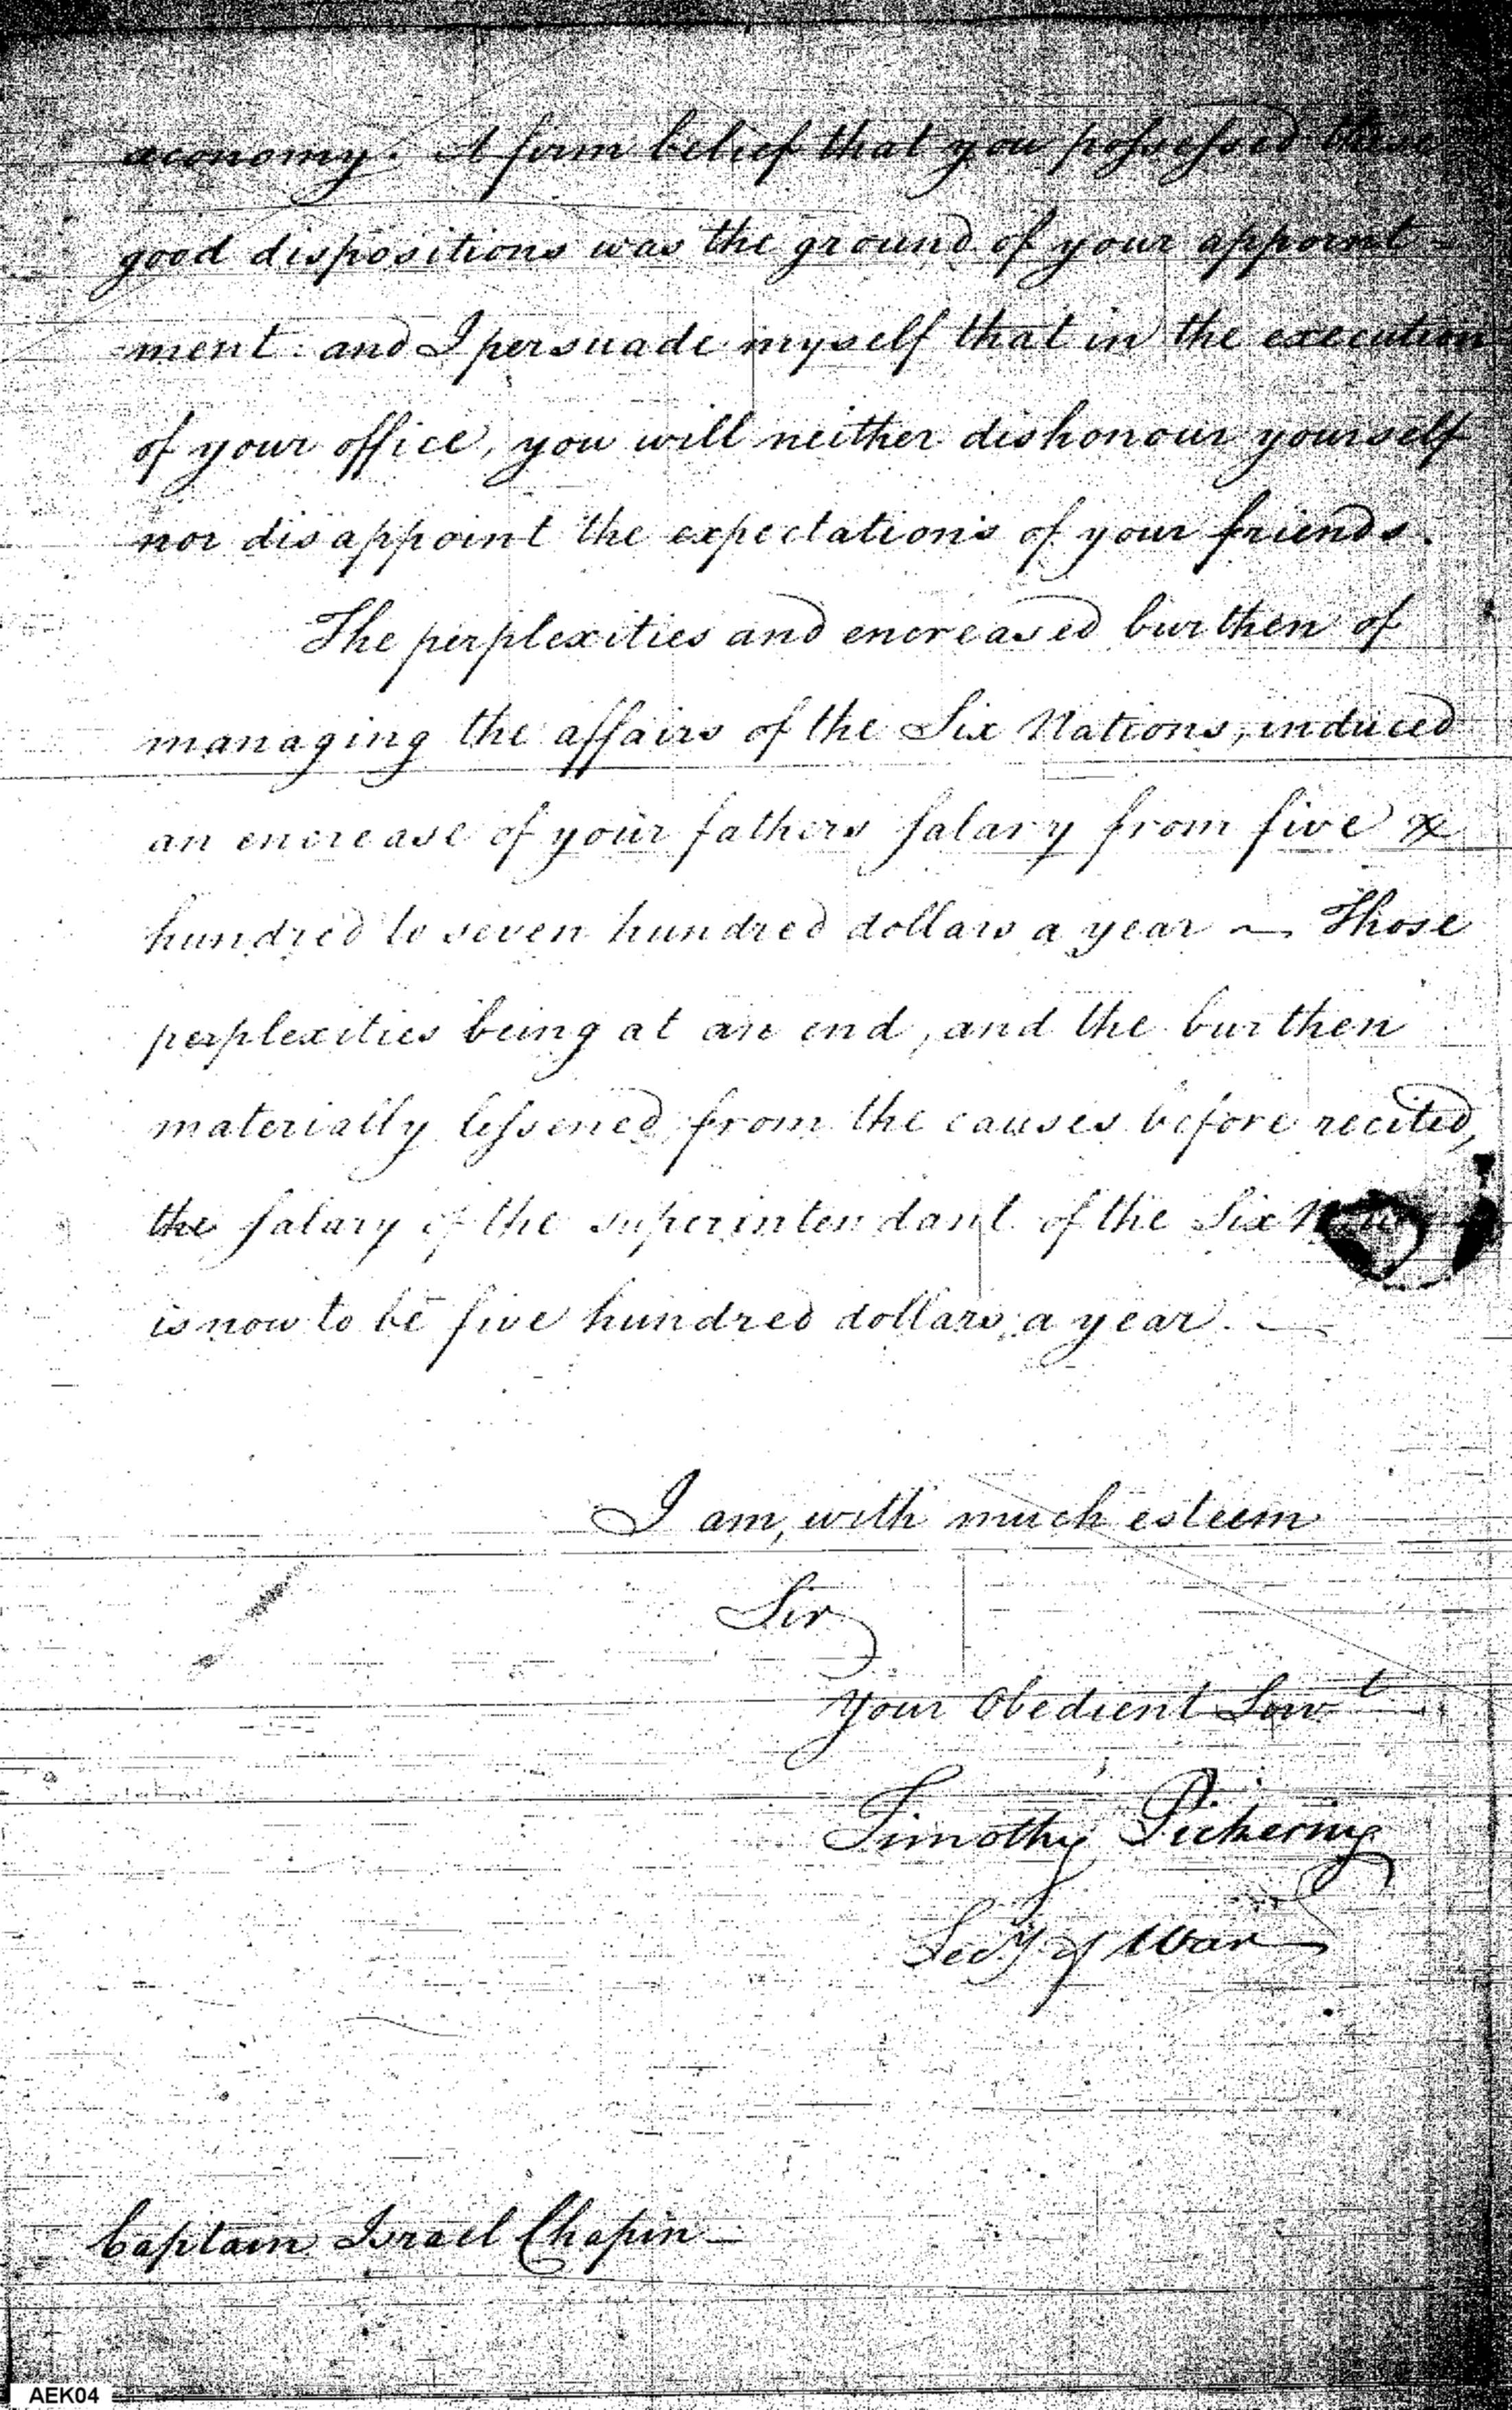 œconomy. A firm belief that you possessed these
good dispositions was the ground of your appoint-
ment: and I persuade myself that in the execution
of your office, you will neither dishonour yourself
nor disappoint the expectations of your friends.
The perplexities and encreased burthen of
managing the affairs of the Six Nations, induced
an encrease of your fathers salary from five x
hundred to seven hundred dollars a year — Those
perplexities being at an end, and the burthen
materially lessened, from the causes before recited,
the salary of the superintendant of the Six
is now to be five hundred dollars a year. —
I am, with much esteem
Sir
Your Obedient Servt
Timothy Pickering
Secy of War
Captain Israel Chapin —
AEK04